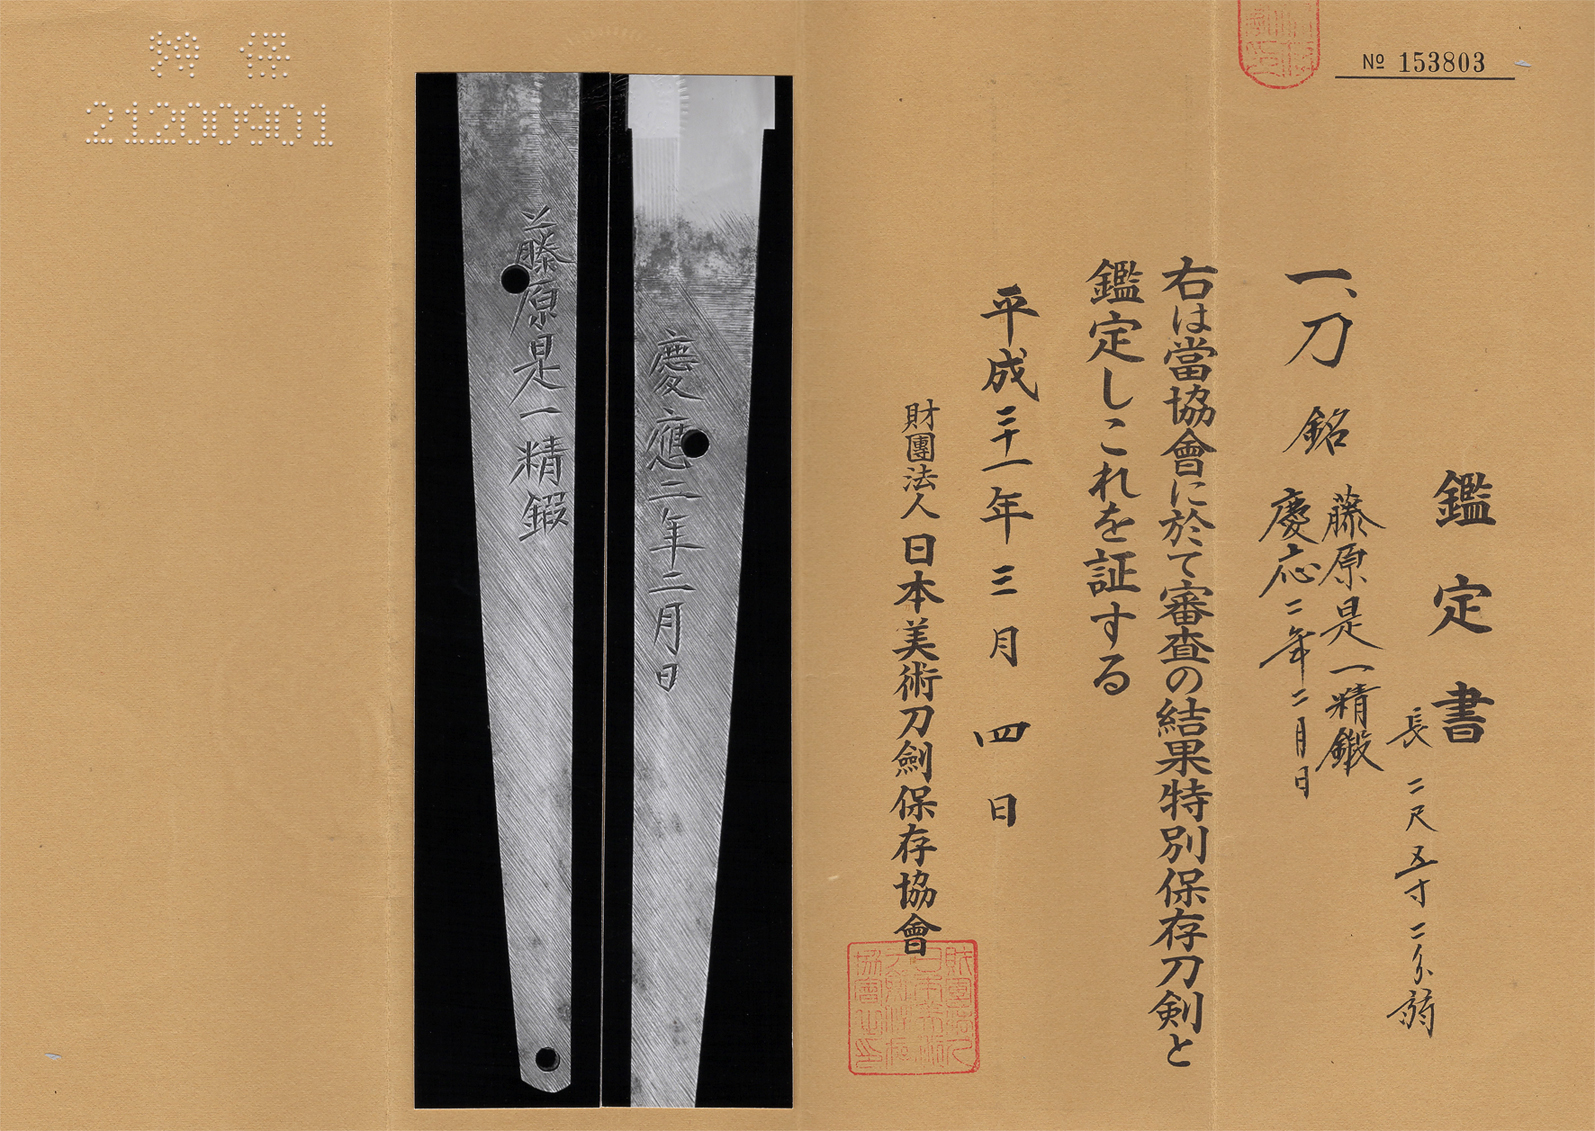 № 153803
鑑定書
長 二尺五寸二分弱
一、刀 銘 藤原是一精鍛
慶応二年二月日
右は當協會に於て審査の結果特別保存刀剣と
鑑定しこれを証する
平成二十一年三月四日
財團法人日本美術刀劍保存協會
慶應二年二月日
藤原是一精鍛
特保
21200901